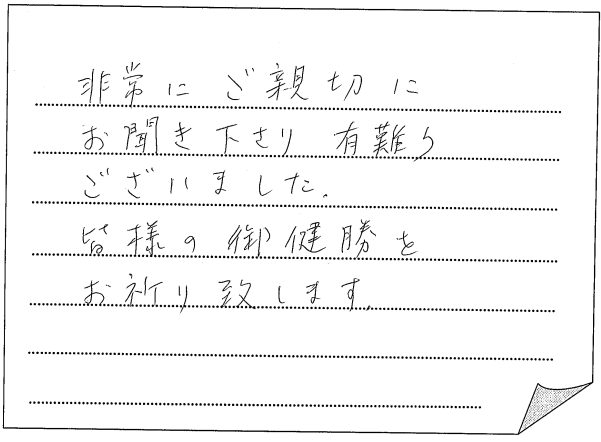 非常にご親切に
お聞き下さり 有難う
ございました.
皆様の御健勝を
お祈り致します.